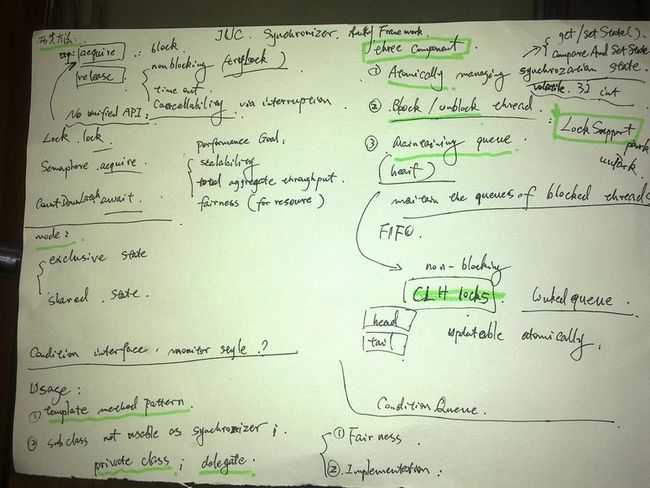 JUC Synchronizer Framework.
两类方法:
acquire : block
release : nonblocking (trylock)
time out
Cancellability via interruption
No unified API:
Lock. lock
Semaphore. acquire
CountDownLatch await
performance Goal:
scalability
total aggregate throughput.
fairness (for resource)
mode:
exclusive state
shared state.
Condition interface. monitor style ?
Usage:
① template method pattern.
② subclass not usable as synchronizer;
private class; delegate.
three Component
get/set State().
compare And Set State
① Atomically managing synchronization state.
volatile. 32 int
② Block / unblock thread : Lock Support
park
unpark.
③ Maintaining queue
(heart)
maintain the queues of blocked threads
FIFO.
non-blocking
CLH locks. linked queue
head
tail
updatable atomically.
Condition Queue.
① Fairness.
② Implementation: